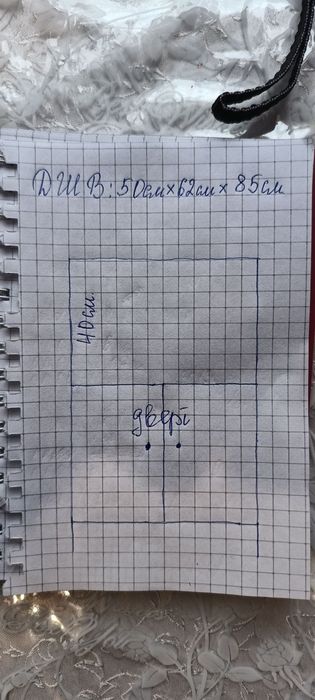 ДШВ: 50см×62см×85см
40см.
двері